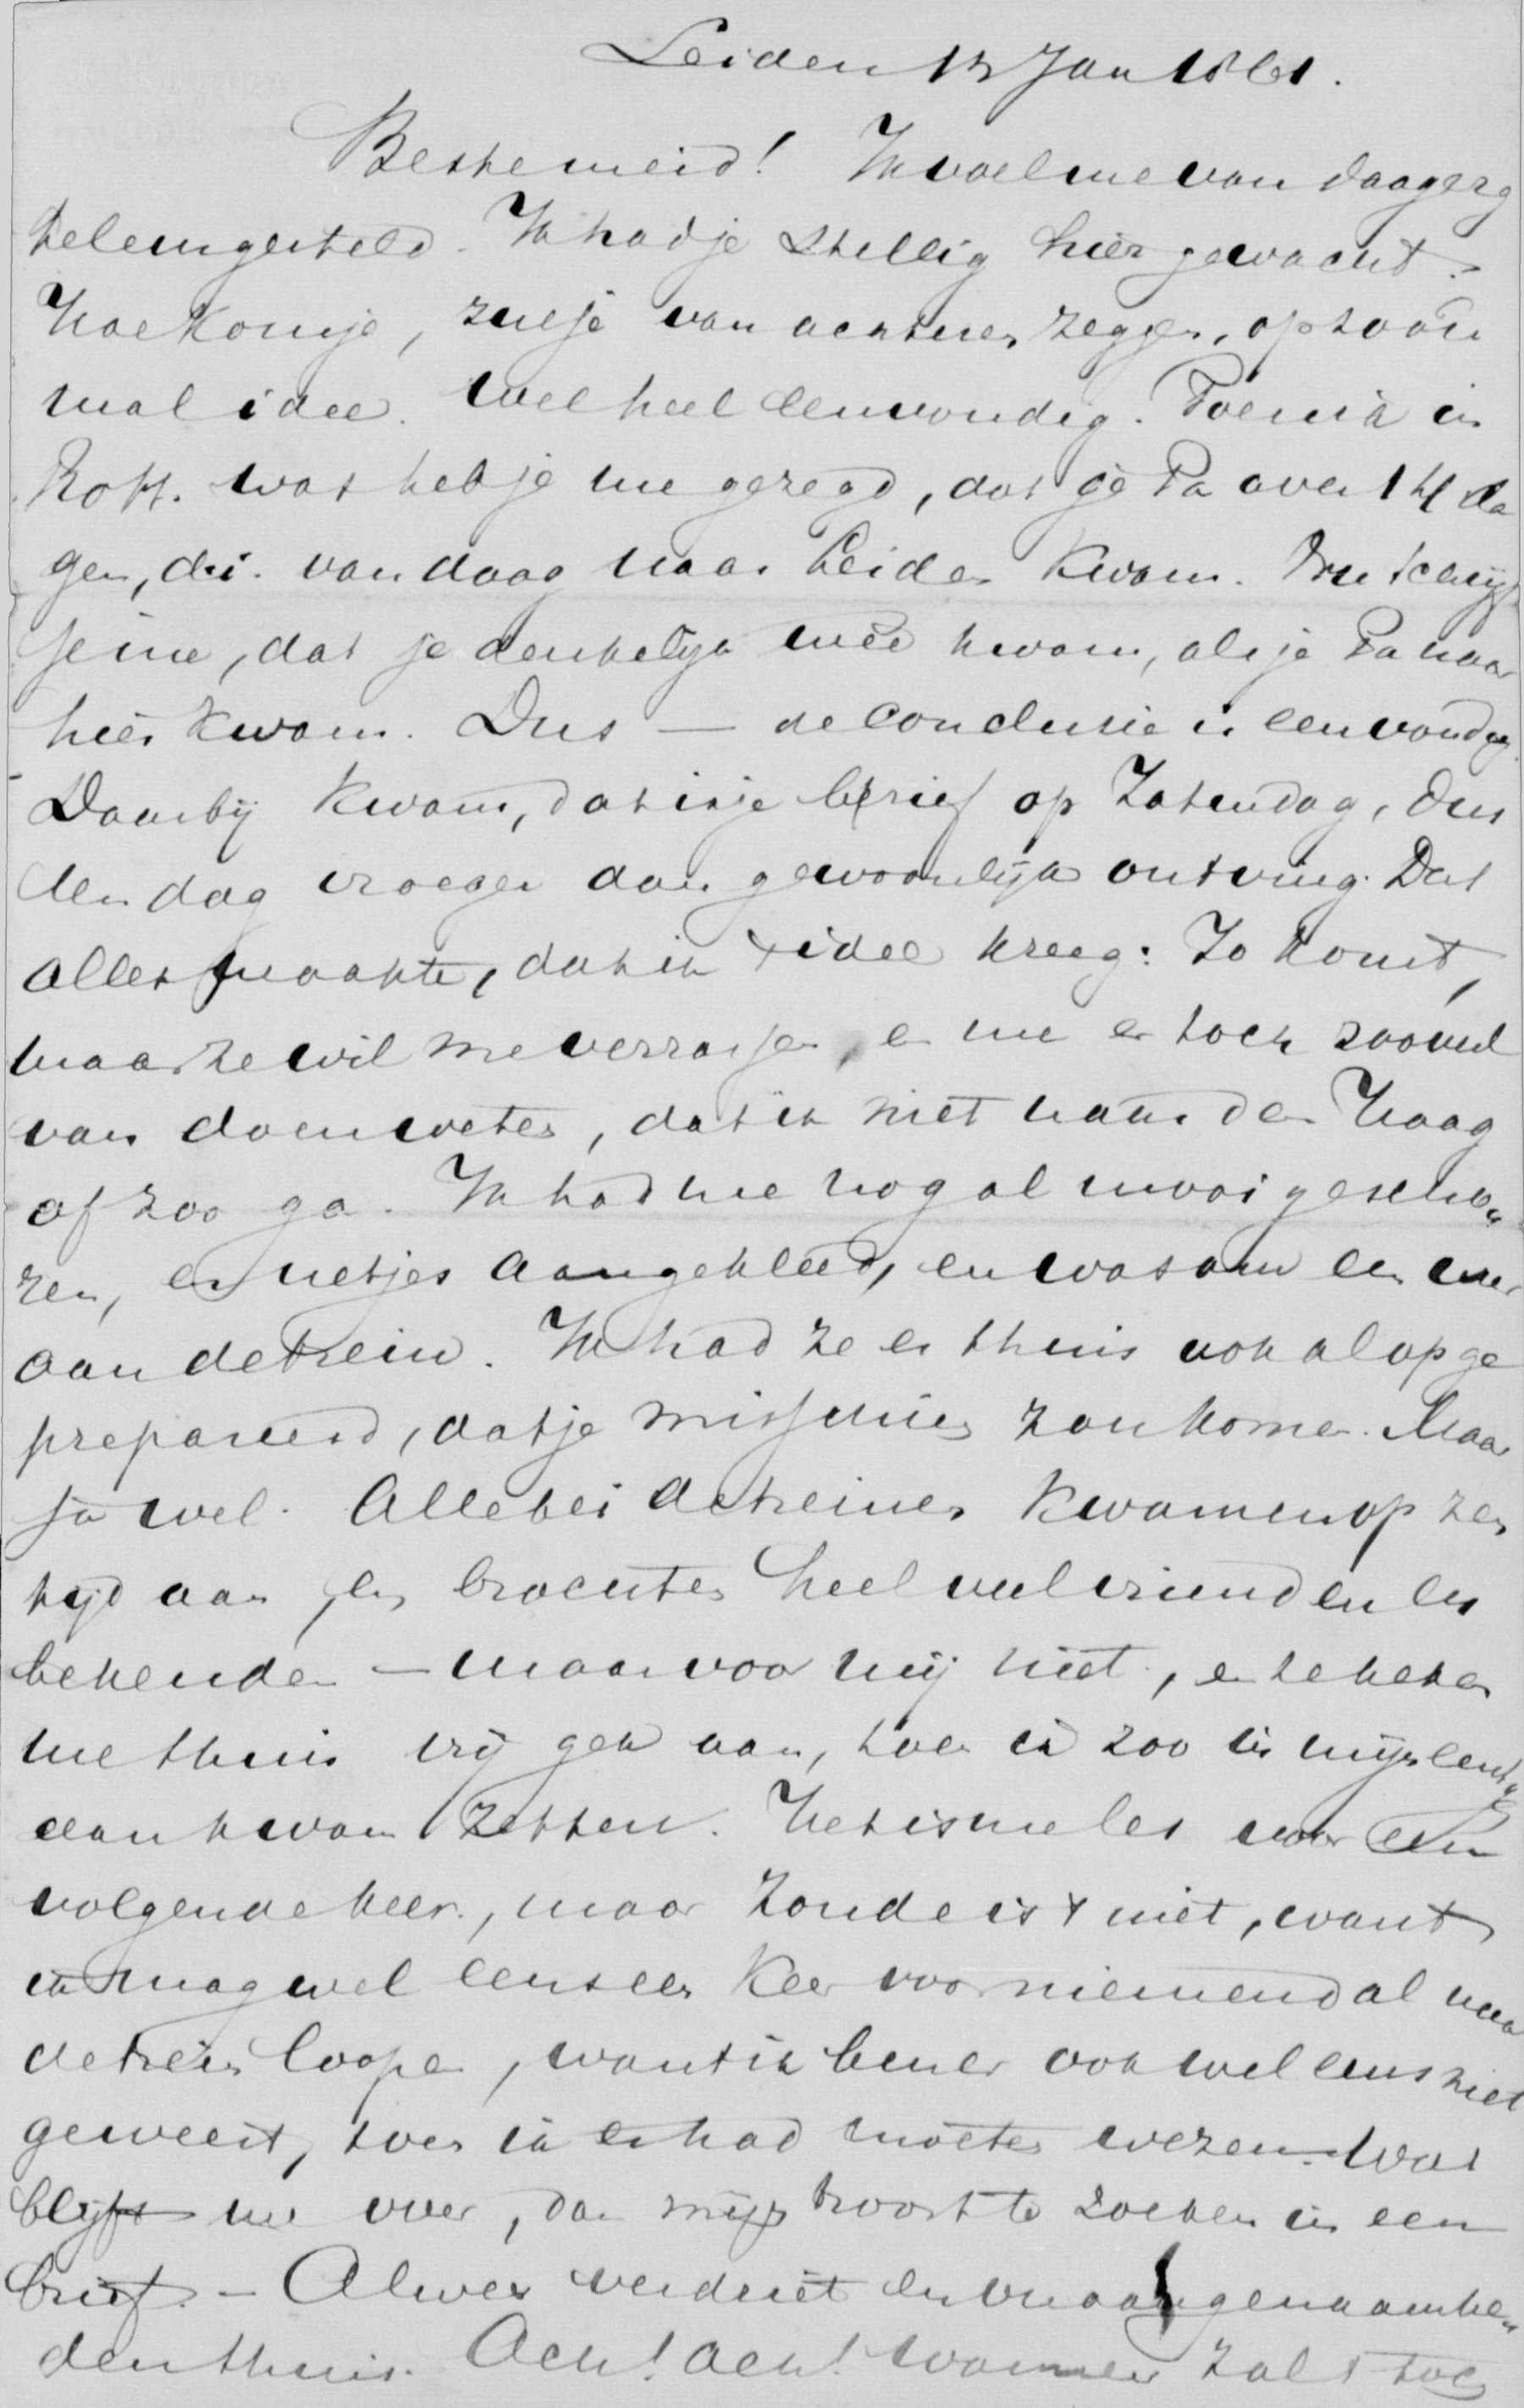 Leiden 13 Jan 1861.
Beste meid! Ik voel me van daag erg
teleurgesteld. Ik had je stellig hier gewacht.
Hoe kom je, zul je van achteren zeggen, op zoo'n
mal idee. Wel heel eenvoudig. Toen ik in
Rott. was heb je me gezegd, dat je Pa over 14 da
gen, d.i. vandaag naar Leiden kwam. Toen schrijf
je me, dat je denkelijk mee kwam, als je Pa naar
hier kwam. Dus — de conclusie is eenvoudig.
Daarbij kwam, dat ik je brief op Zaterdag, dus
een dag vroeger dan gewoonlijk ontving. Dat
alles maakte, dat ik t idee kreeg: Jo komt,
maar ze wil me verrassen, en me er toch zooveel
van doen weten, dat ik niet naar den Haag
of zoo ga. Ik had me nogal mooi gescho
ren, en netjes aangekleed, en was om een uur
aan de trein. Ik had ze er thuis ook al op ge
prepareerd, dat je misschien zou komen. Maar
ja wel. Allebei de treinen kwamen op zen
tijd aan, en brachten heel veel vrienden en
bekenden — maar voor mij niet, en ze keken
me thuis vrij gek aan, toen ik zoo in mijn eentje
aan kwam zetten. Het is me les voor een
volgende keer, maar zonde is t niet, want
ik mag wel eens een keer voor niemendal naar
de trein loopen, want ik ben er ook wel eens niet
geweest, toen ik er had moeten wezen. Wat
blijft me over, dan mijn troost te zoeken in een
brief. — Alweer verdriet en onaangenaamhe
den thuis. Ach! ach! wanneer zal t toch